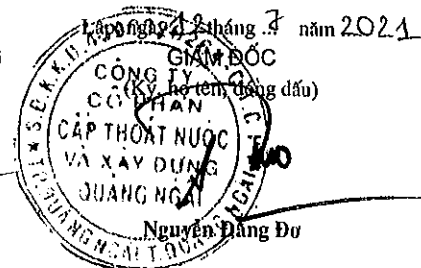 Lập, ngày 12 tháng 7 năm 2021
GIÁM ĐỐC
(Ký, họ tên, đóng dấu)
CÔNG TY
CỔ PHẦN
CẤP THOÁT NƯỚC
VÀ XÂY DỰNG
QUẢNG NGÃI
Nguyễn Đăng Đơ